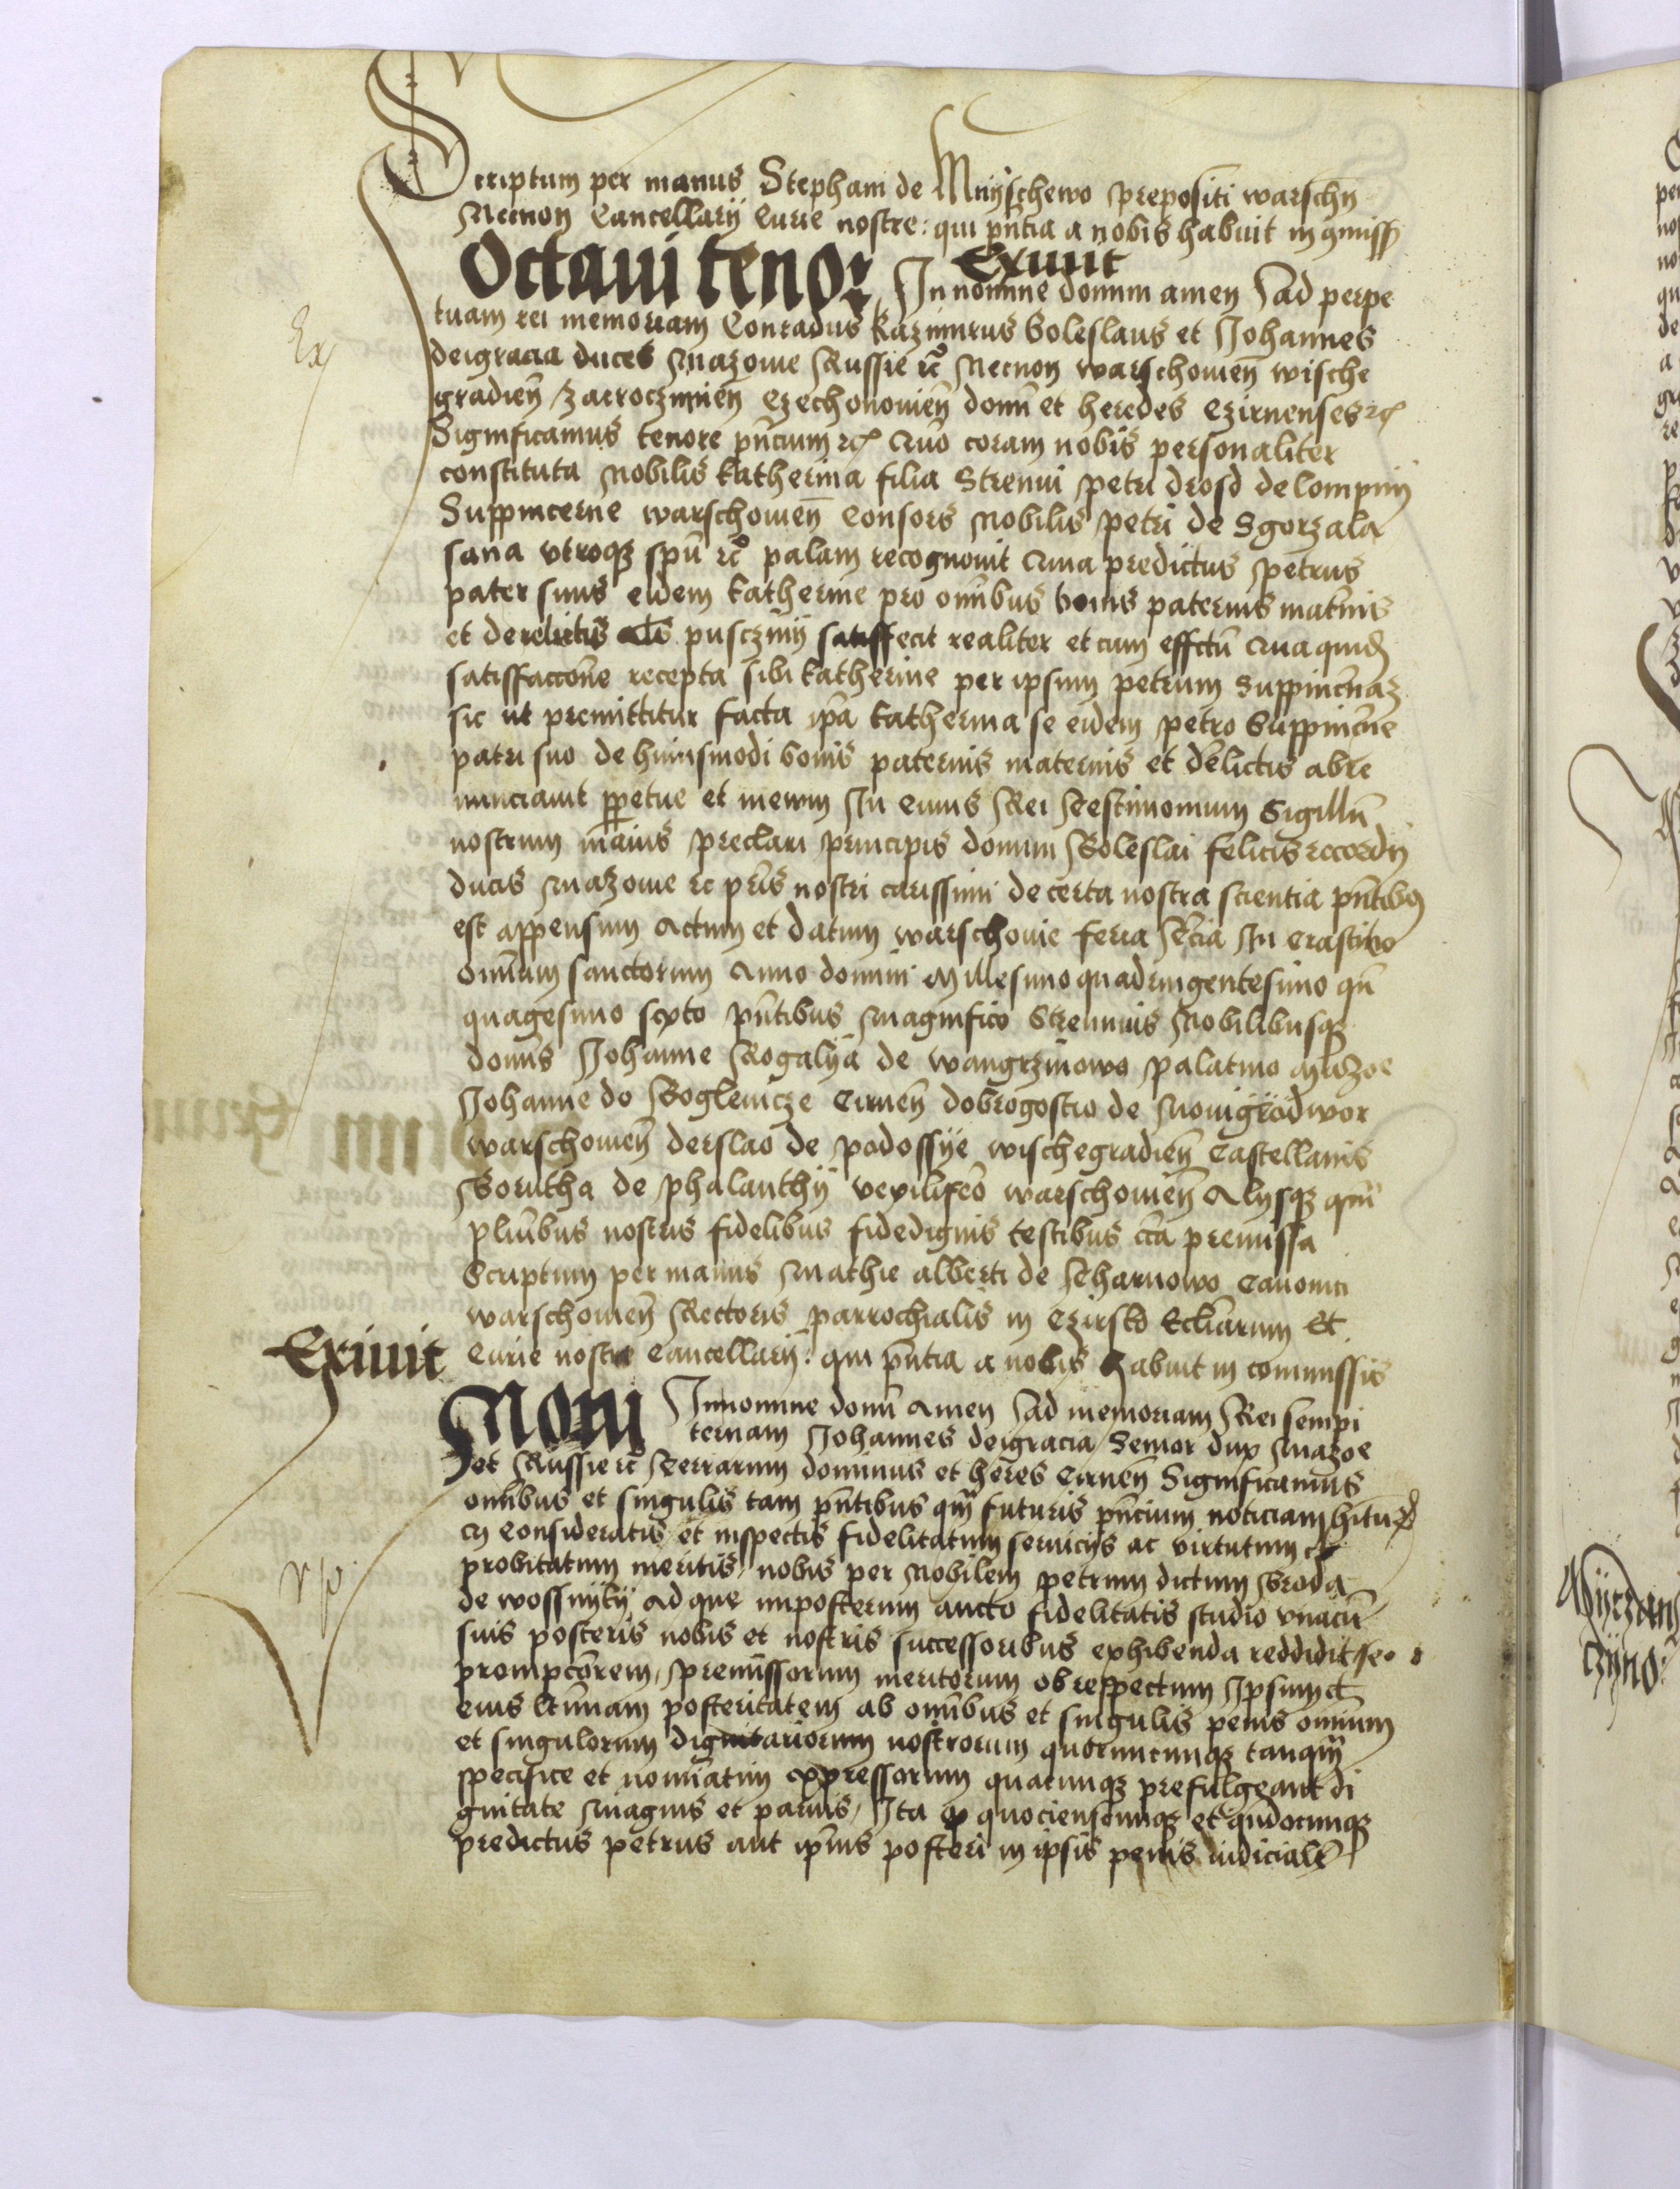 Scriptum per manus Stephani de Mnyschewo prepositi warschn̄
Necnon Cancellarij Curie nostre: qui pn̄tia a nobis habuit in 9miss
Octaui tenor Exiuit
In nomine domini amen Ad perpe
tuam rei memoriam Conradus kazimirus Boleslaus et Johannes
deigracia duces Mazouie Russie rc̄ Necnon warschouien̄ wische
gradien̄ zacroczimien̄ Czechonouien̄ domī et heredes Czirnenses rc̄
Significamus tenore pn̄cium rc̄ Quō coram nobis personaliter
constituta Nobilis katherina filia Strenui petri drosd de lompnij
Suppincerne warschouien̄ Consors Nobilis petri de Sgorzala
sana vtroqꝫ spū rc̄ palam recognouit Quia predictus petrus
pater suus eidem katherine pro om̄ibus bonis paternis mat̄nis
et derelictis als pusczinij satisfecit realiter et cum effctū Qua quid
satisffaccōne recepta sibi katherine per ipsum petrum Suppincn̄aꝫ
sic ut premittitur facta ip̄a katherina se eidem petro Suppincn̄e
patri suo de huiusmodi bonis paternis maternis et dēlictis abre
nunciauit ppetue et in ewm In Cuius Rei Testimonium Sigillū
nostrum maius preclari principis domini Boleslai felicis recordij
ducis Mazouie rc pr̄is nostri carissimi de certa nostra scientia pn̄tibꝫ
est appensum Actum et datum warschouie feria Tc̄ia In Crastino
Omniūm sanctorum Anno domini Millesimo quadringentesimo qn̄
quagesimo sexto pn̄tibus Magnifico Strennuis Nobilibusqꝫ
domīs Johanne Rogalya de wangrzinowo palatino Mazoe
Johanne do Roglenicze Cirnen̄ dobrogostio de Nouigrodwor
warschouien̄ derslao de podossÿe wischegradien̄ Castellanis
Borutha de phalanthÿ vexilifēo warschouien̄ Alijsqꝫ qm̄
plurib̄us nostris fidelibus fidedignis testibus cc̄a premissa
Scriptum per manus Mathie alberti de Tcharnowo Canonici
warschouien̄ Rectoris parrochialis in Czirsko Eccliarum Et
Exiuit Curie nostre Cancellarij: qui pn̄tia a nobis habuit in commissis
Noni In nomine domī Amen Ad memoriam Rei sempi
ternam Johannes deigracia Senior dux Mazoe
et Russie rc̄ Terrarum dominus et heres Cirnen̄ Significamus
om̄ibus et singulis tam pn̄tibus qm̄ futuris pn̄cium noticiam hitur
Consideratis et inspectis fidelitatum seruicijs ac virtutum et
probitatum meritis nobis per Nobilem petrum dictum Broda
de wossinÿtÿ Ad que inposterum aucto fidelitatis studio vnacū
suis posteris nobis et nostris successoribus exhibenda reddidit se
prompcōrem, premissorum meritorum ob respectum Ipsum et
eius ltīmam posteritatem ab om̄ibus et singulis penis omnium
et singulorum dignitariorum nostrorum quorumcunqꝫ tanqm̄
specifice et nomīatim expressorum quacunqꝫ prefulgeant di
gnitate Magnis et paruis, Ita qꝫ quocienscunqꝫ et qn̄documqꝫ
predictus petrus aut ip̄ius posteri in ipsis penis iudicialr̄